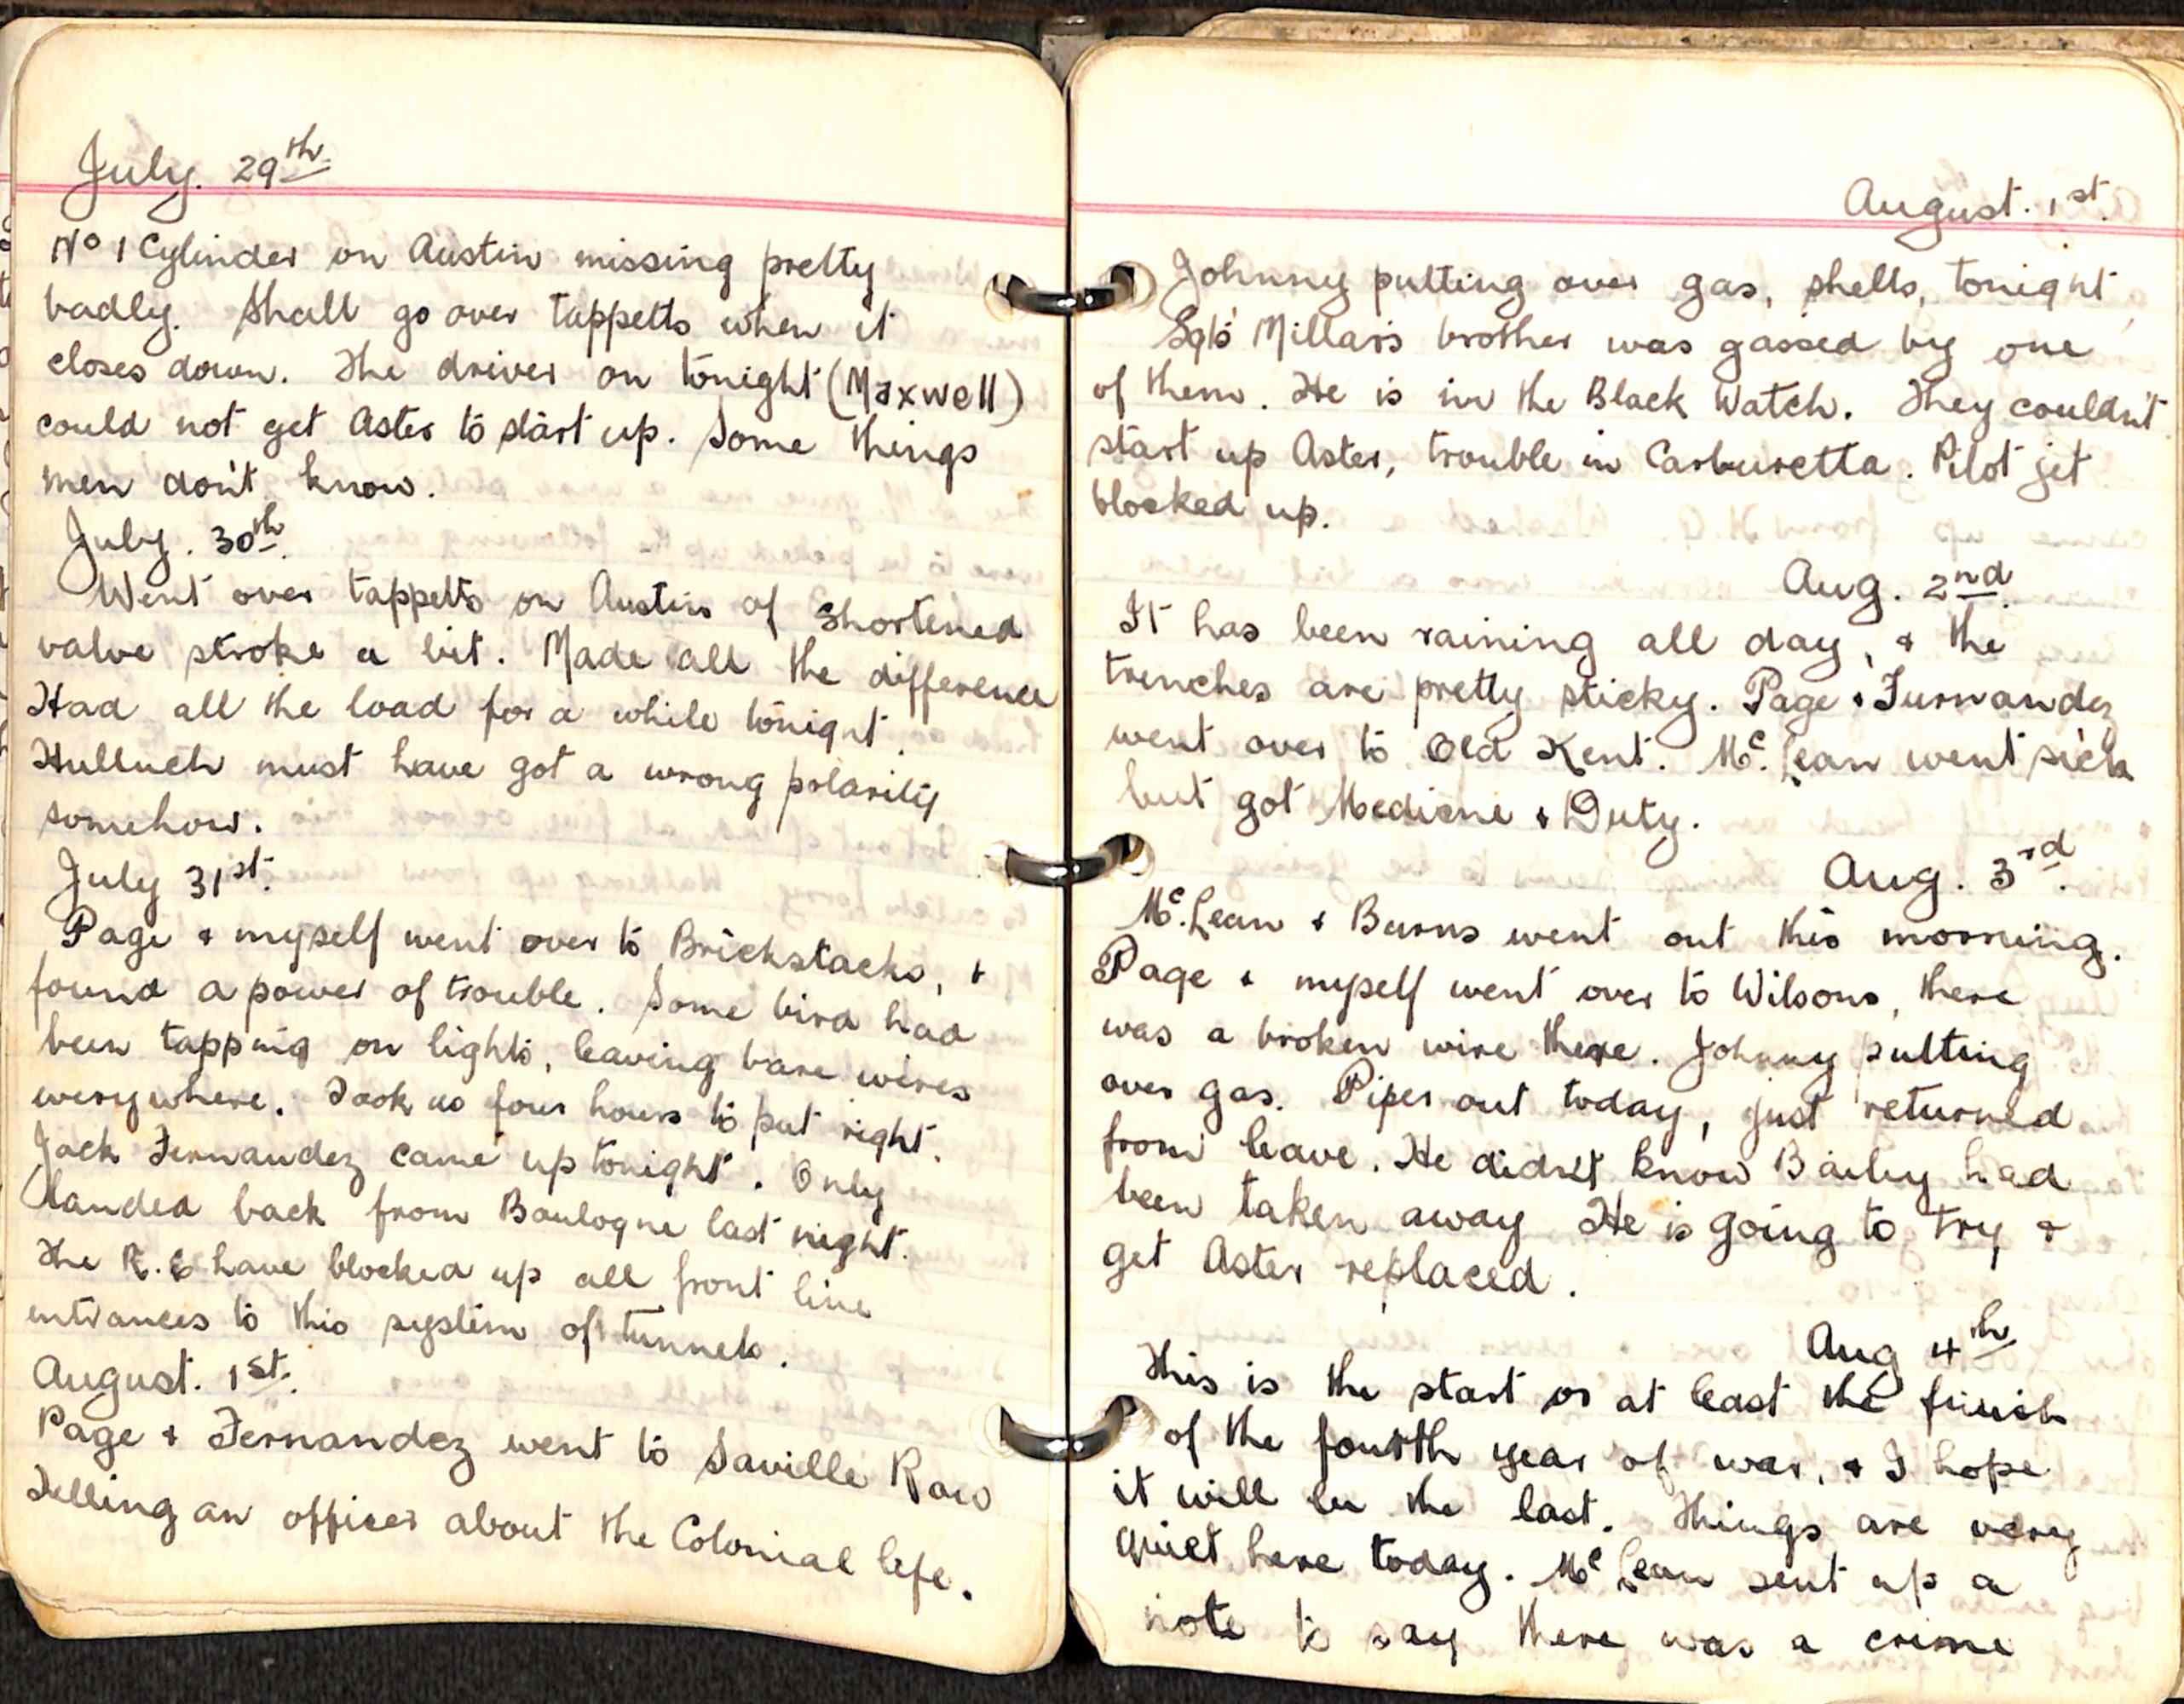 July. 29th
No 1 Cylinder on Austin missing pretty
badly. Shall go over tappetts when it
closes down. The driver on tonight (Maxwell)
could not get Aster to start up. Some things
men don't know.
July. 30th.
Went over tappetts on Austin of shortened
valve stroke a bit. Made all the difference
Had all the load for a while tonight.
Hulluch must have got a wrong polarity
somehow.
July 31st.
Page & myself went over to Brickstacks, &
found a power of trouble. Some bird had
been tapping on lights, leaving bare wires
everywhere. Took us four hours to put right.
Jack Fernandez came up tonight. Only
landed back from Boulogne last night.
The R.E have blocked up all front line
entrances to this system of tunnels.
August. 1st.
Page & Fernandez went to Saville Row
Telling an officer about the Colonial life.
August. 1st.
Johnny putting over gas, shells, tonight,
Sgts' Millars brother was gassed by one
of them. He is in the Black Watch. They couldn't
start up Aster, trouble in Carburetta. Pilot jet
blocked up.
Aug. 2nd.
It has been raining all day, & the
trenches are pretty sticky. Page & Furnandez
went over to Old Kent. Mc. Lean went sick
but got Medicine & Duty.
Aug. 3rd.
Mc. Lean & Burns went out this morning.
Page & myself went over to Wilsons, there
was a broken wire there. Johnny putting
over gas. Piper out today, just returned
from leave. He didn't know Bailey had
been taken away He is going to try &
get Aster replaced.
Aug 4th
This is the start or at least the finish
of the fourth year of war, & I hope
it will be the last. Things are very
quiet here today. Mc Lean sent up a
note to say there was a crime